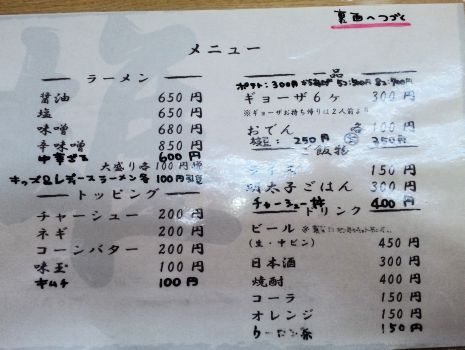 裏面へつづく
メニュー
ラーメン
醤油 650円
塩 650円
味噌 680円
辛味噌 850円
中華ざる 600円
大盛り各100円増
キッズ&レディースラーメン各100円引き
トッピング
チャーシュー 200円
ネギ 200円
コーンバター 200円
味玉 100円
キムチ 100円
一品
ポテト:300円
ギョーザ6ヶ 300円
※ギョーザお持ち帰りは2人前より
おでん 各100円
250円 350円
ご飯物
ライス 150円
明太子ごはん 300円
チャーシュー丼 400円
ドリンク
ビール
(生・中ビン) 450円
日本酒 300円
焼酎 400円
コーラ 150円
オレンジ 150円
ウーロン茶 150円